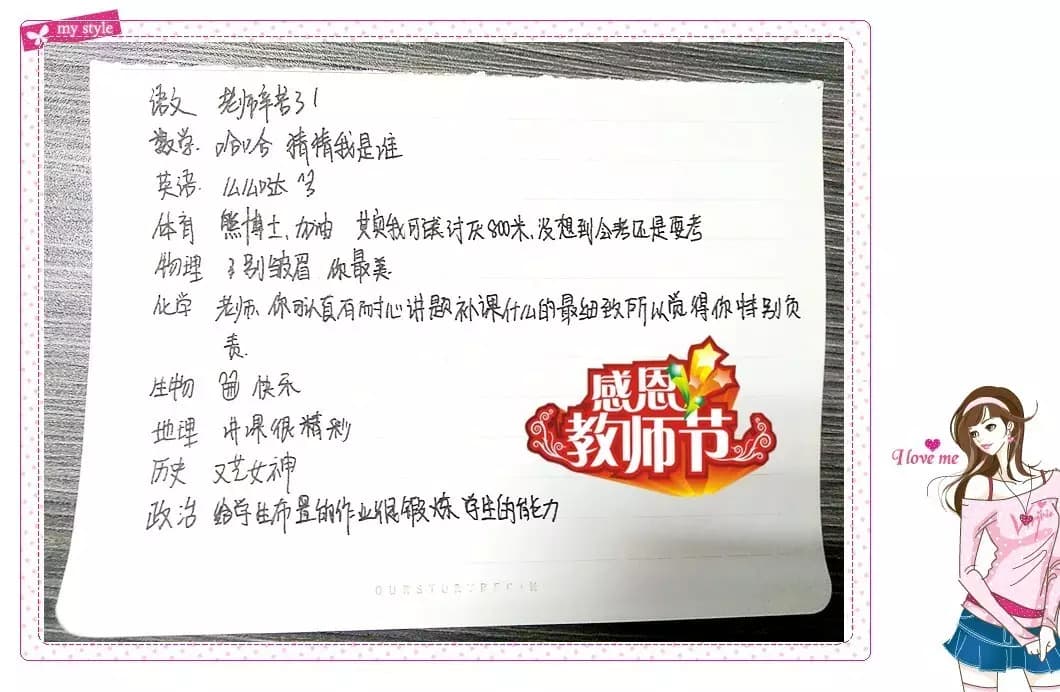 my style
语文 老师辛苦了!
数学. 哈哈 猜猜我是谁
英语. 么么哒
体育 熊博士、加油 其实我可讨厌800米,没想到会考还是要考
物理 别皱眉 你最美
化学 老师、你可认真有耐心讲题补课什么的最细致所以觉得你特别负
责.
生物 快乐
地理 讲课很精彩
历史 文艺女神
政治 给学生布置的作业很锻炼学生的能力
感恩
教师节
I love me